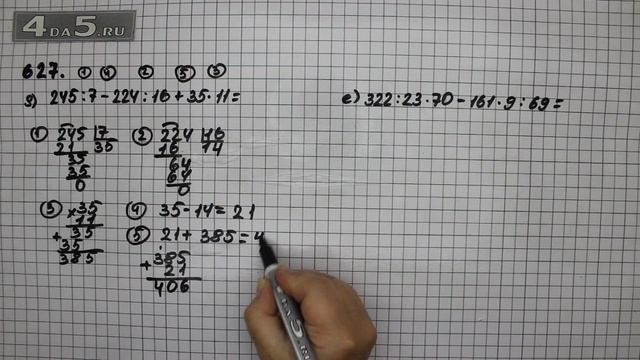 4DA5.RU
627. ① ④ ② ⑤ ③
д) 245:7-224:16+35·11=
е) 322:23·70-161·9:69=
① 245 | 7
21 | 35
35
35
0
② 224 | 16
16 | 14
64
64
0
③ ×35
11
+ 35
35
385
④ 35-14=21
⑤ 21+385=4
385
+ 21
406